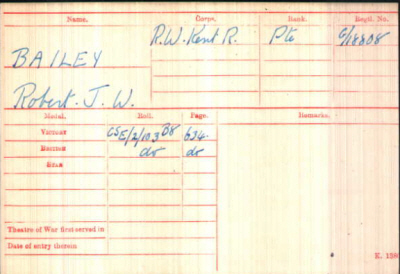 Name. Corps. Rank. Regtl. No.
BAILEY R.W. Kent R. Pte G/18808
Robert. J. W.
Medal. Roll. Page. Remarks.
Victory 634.
British do do
Star
Theatre of War first served in
Date of entry therein